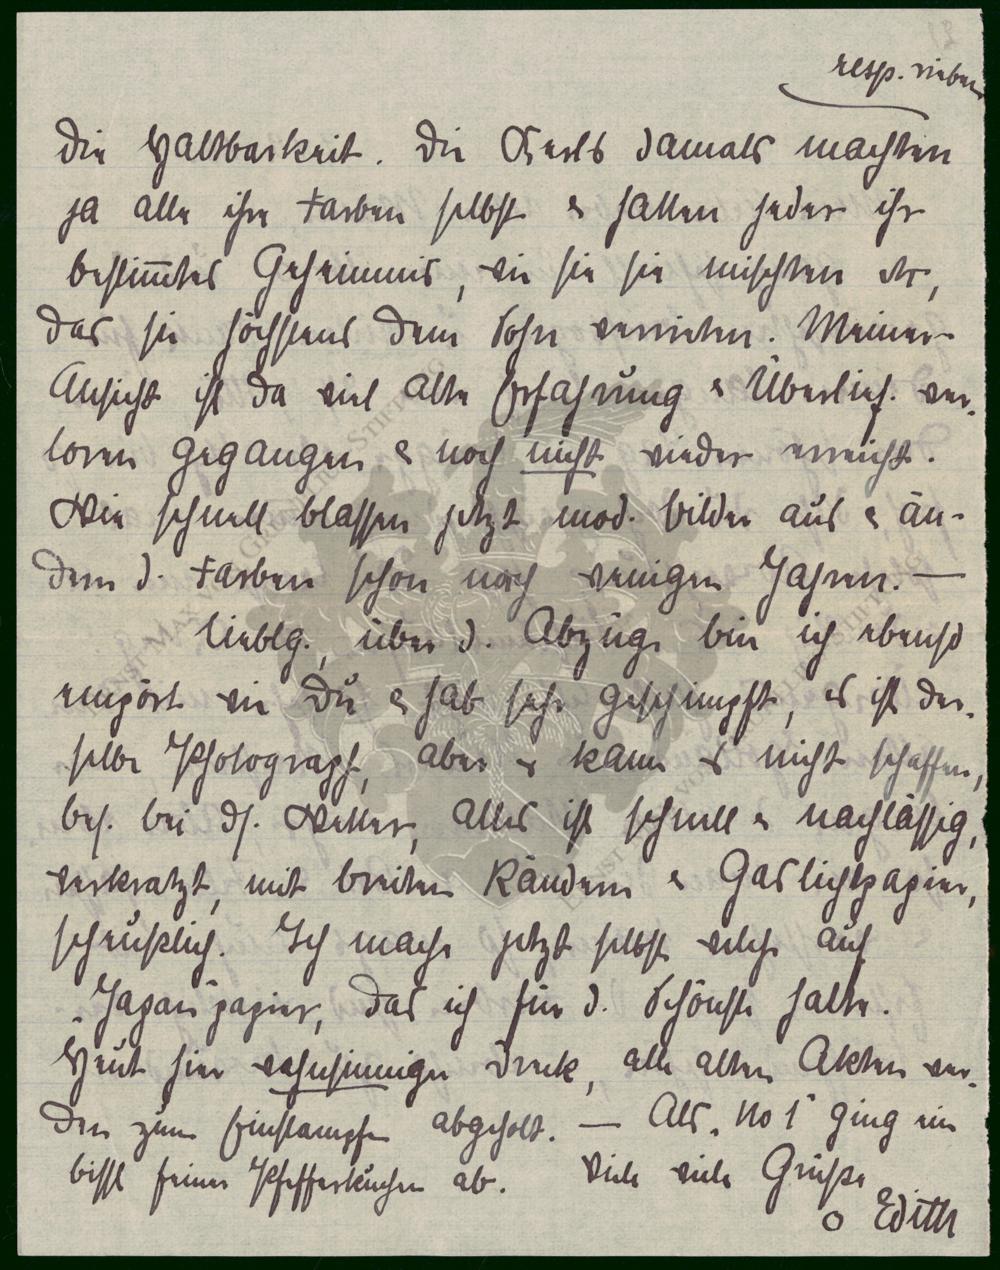 resp. neben
die Haltbarkeit. Die Kerls damals machten
ja alle ihre Farben selbst & hatten jeder ihr
bestim̄tes Geheimnis, wie sie sie mischten etc,
das sie höchstens dem Sohn verrieten. Meiner
Ansicht ist da viel alte Erfahrung & Überlief. ver-
loren gegangen & noch nicht wieder erreicht.
Wie schnell blassen jetzt mod. Bilder aus & än-
dern d. Farben schon nach wenigen Jahren. —
Lieblg., über d. Abzüge bin ich ebenso
empört wie Du & hab sehr geschimpft, es ist der-
selbe Photograph, aber er kann es nicht schaffen,
bes. bei ds. Wetter, alles ist schnell & nachlässig,
verkratzt, mit breiten Rändern & Gaslichtpapier,
scheußlich. Ich mache jetzt selbst welche auf
„Japan"papier, das ich für d. Schönste halte.
Heut hier wahnsinniger Dreck, alle alten Akten wer-
den zum Einstampfen abgeholt. — Als „No 1" ging ein
bissl feiner Pfefferkuchen ab. Viele viele Grüße
o Edith